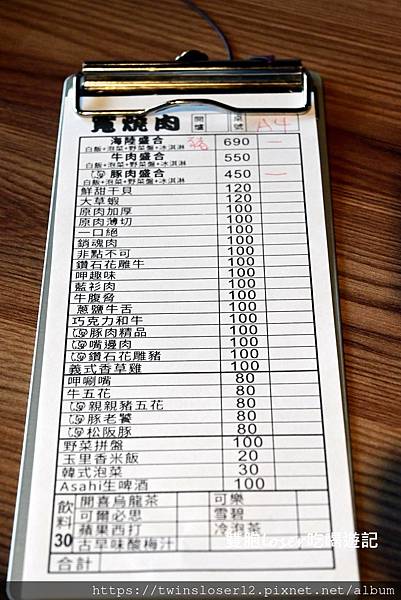 燒肉 開爐 桌號 A4
海陸盛合 豬 690 一
白飯+泡菜+野菜盤+冰淇淋
牛肉盛合 550
白飯+泡菜+野菜盤+冰淇淋
豚肉盛合 450 一
白飯+泡菜+野菜盤+冰淇淋
鮮甜干貝 120
大草蝦 120
原肉加厚 100
原肉薄切 100
一口絕 100
銷魂肉 100
非點不可 100
鑽石花雕牛 100
呷趣味 100
藍衫肉 100
牛腹脅 100
蔥鹽牛舌 100
巧克力和牛 100
豚肉精品 100
嘴邊肉 100
鑽石花雕豬 100
義式香草雞 100
呷唰嘴 80
牛五花 80
親親豬五花 80
豚老饕 80
松阪豚 80
野菜拼盤 100
玉里香米飯 20
韓式泡菜 30
Asahi生啤酒 100
飲料30
開喜烏龍茶 可樂
可爾必思 雪碧
蘋果西打 冷泡茶
古早味酸梅汁
合計
雙胞Loser吃喝遊記
https://twinsloser12.pixnet.net/album